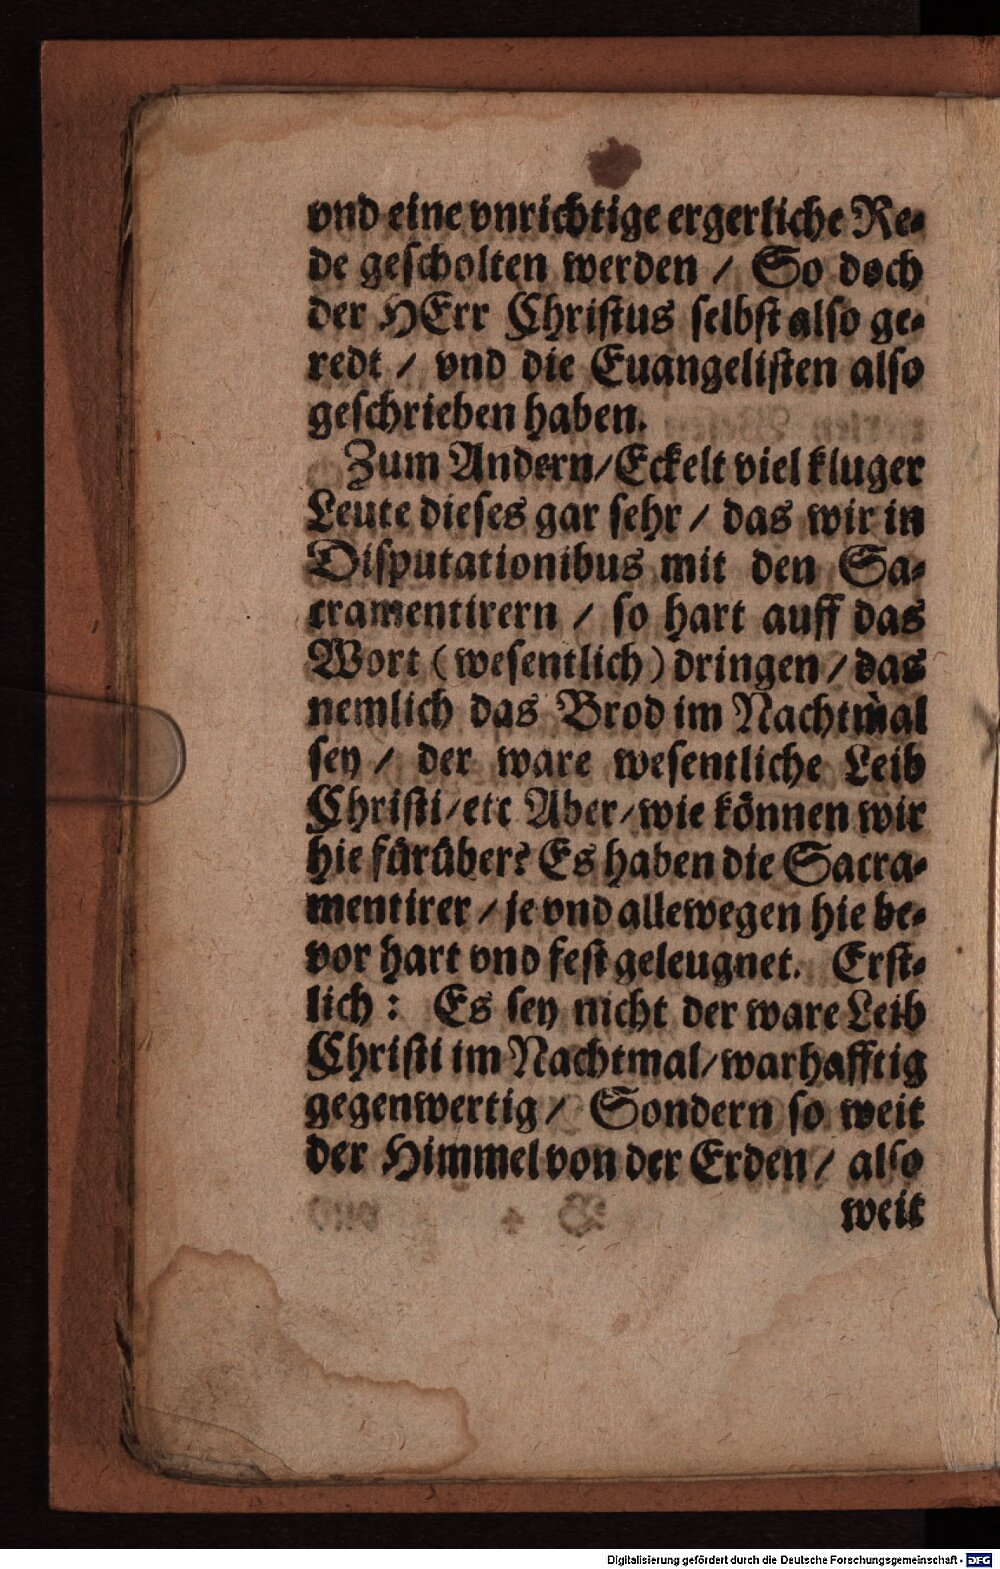 vnd eine vnrichtige ergerliche Re-
de gescholten werden / So doch
der HErr Christus selbst also ge-
redt / vnd die Euangelisten also
geschrieben haben.
Zum Andern/Eckelt viel kluger
Leute dieses gar sehr / das wir in
Disputationibus mit den Sa-
cramentirern / so hart auff das
Wort (wesentlich) dringen / das
nemlich das Brod im Nachtmal
sey / der ware wesentliche Leib
Christi/etc Aber/wie können wir
hie fürüber? Es haben die Sacra-
mentirer / je vnd allewegen hie be-
vor hart vnd fest geleugnet. Erst-
lich: Es sey nicht der ware Leib
Christi im Nachtmal/warhafftig
gegenwertig / Sondern so weit
der Himmel von der Erden / also
weit
Digitalisierung gefördert durch die Deutsche Forschungsgemeinschaft - DFG